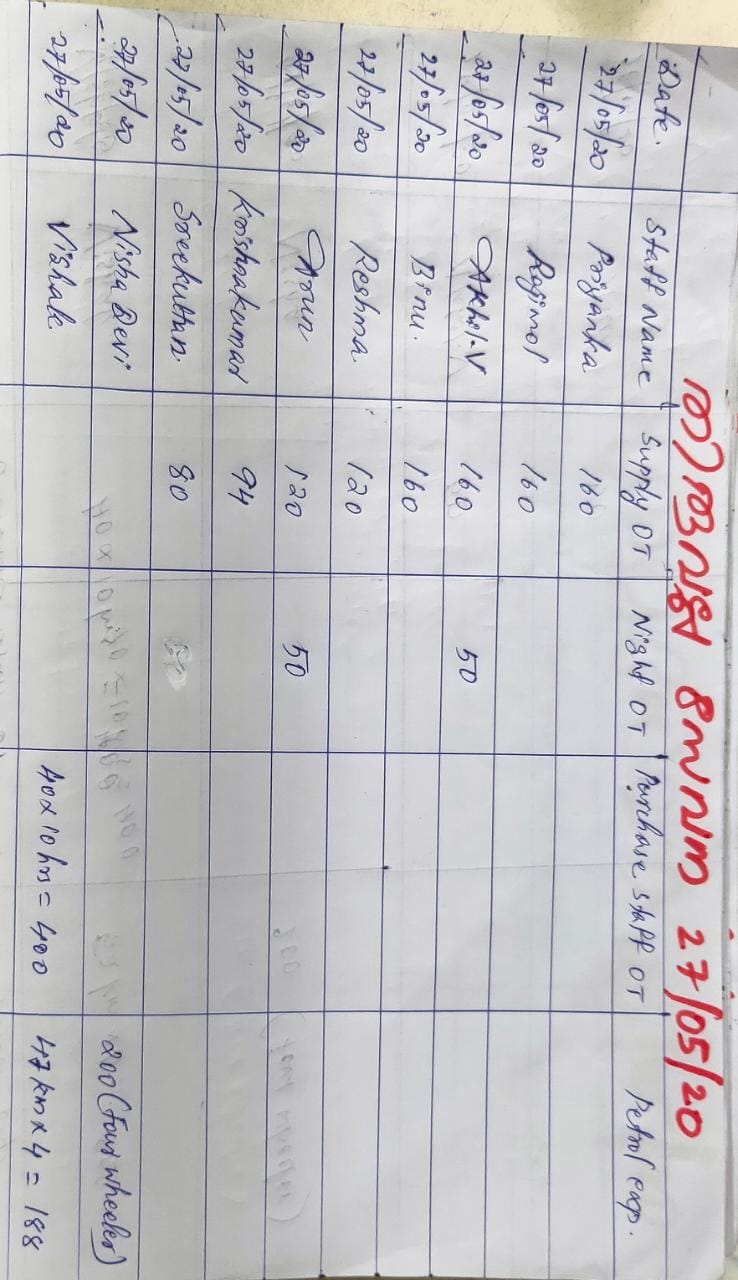 27/05/20
Date. Staff Name Supply OT Night OT Purchase Staff OT Petrol exp.
27/05/20 Priyanka 160
27/05/20 Rajimol 160
27/05/20 Akhil-V 160 50
27/05/20 Binu. 160
27/05/20 Reshma 120
27/05/20 Arun 120 50
27/05/20 Krishnakumar 94
27/05/20 Sreekuttan. 80
27/05/20 Nisha Devi 200 (Four wheeler)
27/05/20 Vishak 40x10hrs = 400 47km x 4 = 188